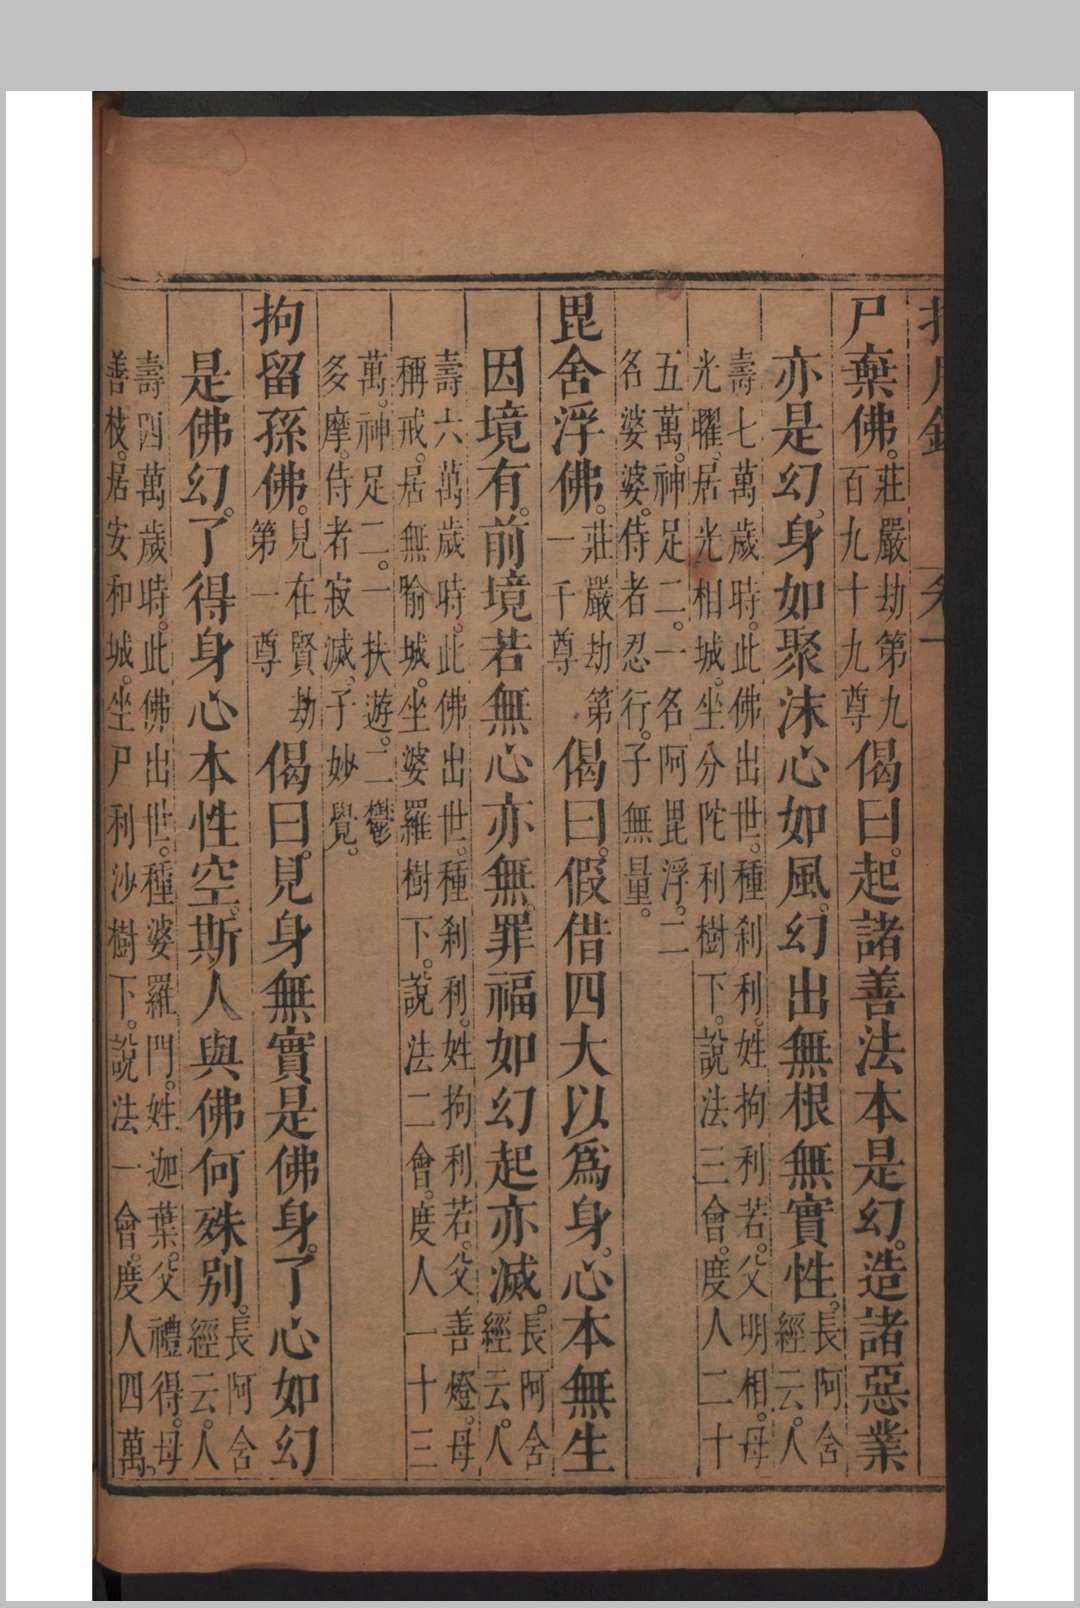 指月錄 卷一
尸棄佛。莊嚴劫第九百九十九尊偈曰。起諸善法本是幻。造諸惡業
亦是幻。身如聚沫心如風。幻出無根無實性。長阿含經云。人
壽七萬歲時。此佛出世。種剎利。姓拘利若。父明相。母
光曜。居光相城。坐分陀利樹下。說法三會。度人二十
五萬。神足二。一名阿毘浮。二
名婆婆。侍者忍行。子無量。
毘舍浮佛。莊嚴劫第一千尊偈曰。假借四大以爲身。心本無生
因境有。前境若無心亦無。罪福如幻起亦滅。長阿含經云。人
壽六萬歲時。此佛出世。種剎利。姓拘利若。父善燈。母
稱戒。居無喻城。坐婆羅樹下。說法二會。度人一十三
萬。神足二。一扶遊。二鬱
多摩。侍者寂滅。子妙覺。
拘留孫佛。見在賢劫第一尊偈曰。見身無實是佛身。了心如幻
是佛幻。了得身心本性空。斯人與佛何殊別。長阿含經云。人
壽四萬歲時。此佛出世。種婆羅門。姓迦葉。父禮得。母
善枝。居安和城。坐尸利沙樹下。說法一會。度人四萬。